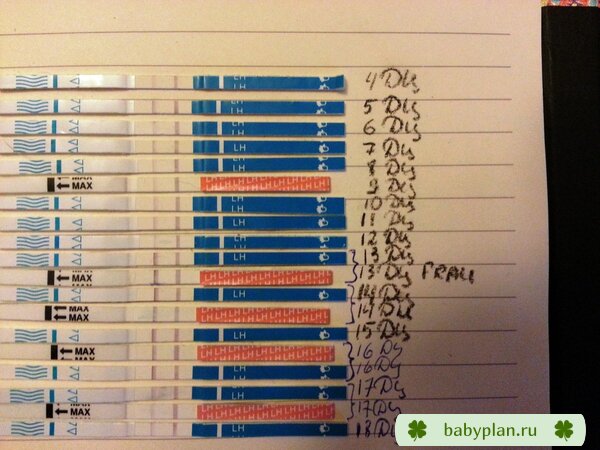 LH 4 ДЦ
LH 5 ДЦ
LH 6 ДЦ
LH 7 ДЦ
LH 8 ДЦ
MAX LHLHLHLHLHLHLH 9 ДЦ
LH 10 ДЦ
LH 11 ДЦ
LH 12 ДЦ
LH 13 ДЦ
MAX LHLHLHLHLHLHLH 13 ДЦ FRAU
LH 14 ДЦ
MAX LHLHLHLHLHLHLH 14 ДЦ
LH 15 ДЦ
MAX LHLHLHLHLHLHLH 16 ДЦ
LH 16 ДЦ
LH 17 ДЦ
MAX LHLHLHLHLHLHLH 17 ДЦ
LH 18 ДЦ
babyplan.ru